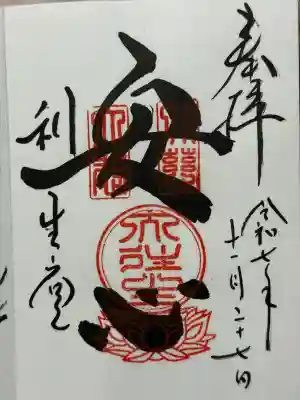 奉拝
令和七年
十一月二十七日
安心
利生堂